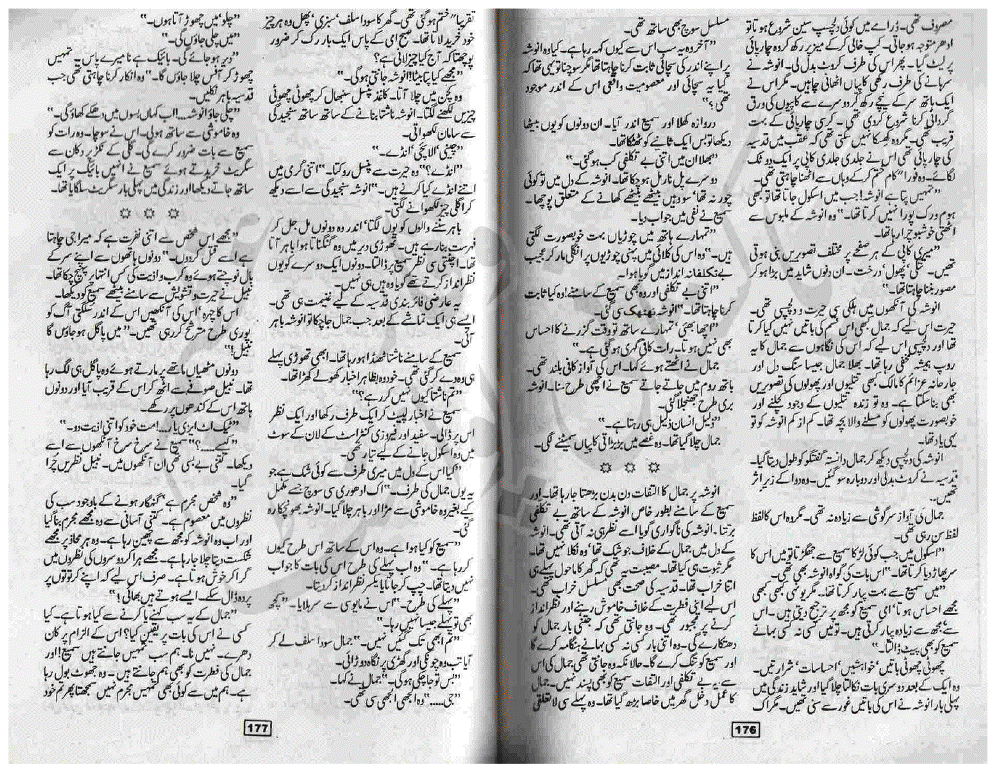 مصروف تھی۔ ڈرامے میں کوئی دلچسپ سین شروع ہوتا تو
ادھر متوجہ ہو جاتی۔ کپ خالی کر کے میز پر رکھ کر وہ چارپائی
پر لیٹ گیا۔ پھر اس کی طرف کروٹ بدل لی۔ انوشہ نے
سرہانے کی طرف رکھی کاپیاں اٹھانی چاہیں۔ مگر اس نے
ایک ہاتھ سر کے نیچے رکھ کر دوسرے سے کاپیوں کی ورق
گردانی کرنا شروع کر دی تھی۔ کرسی چارپائی کے بہت
قریب تھی۔ مگر وہ کھسکا نہیں سکتی تھی کہ عقب میں قدسیہ
کی چارپائی تھی اس نے جلدی جلدی کاپی پر ایک دو ٹک
لگائے۔ وہ فورا" کام ختم کر کے وہاں سے اٹھنا چاہتی تھی۔
"تمہیں پتا ہے انوشہ! جب میں اسکول جاتا تھا تو کبھی
ہوم ورک پورا نہیں کرتا تھا۔" وہ انوشہ کے ملبوس سے
اٹھتی خوشبو چرا رہا تھا۔
"میری کاپی کے ہر صفحے پر مختلف تصویریں بنی ہوتی
تھیں۔ تتلی، پھول، درخت۔ ان دنوں شاید میں بڑا ہو کر
مصور بننا چاہتا تھا۔"
انوشہ کی آنکھوں میں ہلکی سی حیرت و دلچسپی تھی۔
حیرت اس لیے کہ جمال بھی اس قسم کی باتیں نہیں کیا کرتا
تھا اور دلچسپی اس لیے کہ اس کی نگاہوں سے جمال کا یہ
روپ ہمیشہ مخفی رہا تھا۔ بھلا جمال جیسا سنگ دل اور
جارحانہ عزائم کا مالک بھی تتلیوں اور پھولوں کی تصویریں
بھی بنا سکتا ہے۔ وہ تو زندہ تتلیوں کے وجود کچلنے اور
خوبصورت پھولوں کو مسلنے والا بچہ تھا۔ کم از کم انوشہ کو تو
یہی یاد تھا۔
انوشہ کی دلچسپی دیکھ کر جمال دانستہ گفتگو کو طول دیتا گیا۔
قدسیہ نے کروٹ بدلی اور دوبارہ سو گئیں۔ وہ دوا کے زیر اثر
تھیں۔
جمال کی آواز سرگوشی سے زیادہ نہ تھی۔ مگر وہ اس کا لفظ
لفظ سن رہی تھی۔
"اسکول میں جب کوئی لڑکا سمیع سے جھگڑتا تو میں اس کا
سر پھاڑ دیا کرتا تھا۔" اس بات کی گواہ انوشہ بھی تھی۔
"میں سمیع سے بہت پیار کرتا تھا۔۔۔ مگر کبھی کبھی
مجھے احساس ہوتا' امی سمیع کو مجھ پر ترجیح دیتی ہیں۔ اس
سے مجھ سے زیادہ پیار کرتی ہیں۔ تو میں کسی نہ کسی بہانے
سمیع کو بھی پیٹ ڈالتا۔"
چھوٹی چھوٹی باتیں' خواہشیں' احساسات' شرارتیں۔
وہ ایک کے بعد دوسری بات نکالتا چلا گیا اور شاید زندگی میں
پہلی بار انوشہ نے اس کی باتیں غور سے سنی تھیں۔ مگر ایک
مسلسل سوچ بھی ساتھ تھی۔
"آخر وہ یہ سب اس سے کیوں کہہ رہا ہے۔ کیا وہ انوشہ
پر اپنے اندر کی سچائی ثابت کرنا چاہتا تھا مگر سوچنا تو یہی تھا کہ
کیا یہ سچائی اور معصومیت واقعی اس کے اندر موجود
تھی؟"
دروازہ کھلا اور سمیع اندر آیا۔ ان دونوں کو یوں بیٹھا
دیکھا تو بس ایک ثانیے کو ٹھٹکا تھا۔
"بھلا ان میں اتنی بے تکلفی کب ہو گئی۔"
دوسرے پل نارمل ہو چکا تھا۔ انوشہ کے دل میں تو کوئی
چور نہ تھا' سو وہیں بیٹھے بیٹھے کھانے کے متعلق پوچھا۔
سمیع نے نفی میں جواب دیا۔
"تمہارے ہاتھ میں چوڑیاں بہت خوبصورت لگتی
ہیں۔" وہ اس کی کلائی میں پہنی چوڑیوں پر انگلی مار کر عجیب
بے تکلفانہ انداز میں گویا ہوا۔
"اتنی بے تکلفی اور وہ بھی سمیع کے سامنے! وہ کیا ثابت
کرنا چاہتا تھا۔" انوشہ ٹھٹھک سی گئی۔
"اچھا بھئی! تمہارے ساتھ تو وقت گزرنے کا احساس
بھی نہیں ہوتا۔ رات کافی گہری ہو گئی ہے۔"
جمال نے اٹھتے ہوئے کہا۔ اس کی آواز کافی بلند تھی۔
باتھ روم میں جاتے جاتے سمیع نے اچھی طرح سنا۔ انوشہ
بری طرح جھنجلا گئی۔
"ذلیل انسان ذلیل ہی رہتا ہے۔"
جمال چلا گیا تھا۔ وہ غصے میں بڑبڑاتی کاپیاں سمیٹنے لگی۔
☼ ☼ ☼
انوشہ پر جمال کا التفات دن بدن بڑھتا جا رہا تھا۔ اور
سمیع کے سامنے بطور خاص انوشہ کے ساتھ بے تکلفی
برتتا۔ انوشہ کی ناگواری گویا اسے نظر ہی نہ آتی تھی۔ انوشہ
کے دل میں جمال کے خلاف جو شک تھا' وہ نکلا نہیں تھا۔
مگر ثبوت ہی کیا تھا۔ مصیبت یہ تھی کہ گھر کا ماحول پہلے ہی
اتنا خراب تھا۔ قدسیہ کی صحت بھی مسلسل خراب تھی۔
اس لیے اپنی فطرت کے خلاف خاموش رہنے اور نظر انداز
کرنے پر مجبور تھی۔ وہ جانتی تھی کہ جتنی بار جمال کو
دھتکارے گی۔ وہ اتنی بار کسی نہ کسی بہانے ہنگامہ کرے گا
اور سمیع کو تنگ کرے گا۔ حالانکہ وہ جانتی تھی جمال کی اس
سے یہ بے تکلفی اور التفات سمیع کو بھی پسند نہیں۔ جمال
کا عمل دخل گھر میں خاصا بڑھ گیا تھا۔ وہ پہلے سی لاتعلقی
176
تقریبا" ختم ہو گئی تھی۔ گھر کا سودا سلف' سبزی' پھل وہ ہر چیز
خود خرید لاتا تھا۔ صبح امی کے پاس ایک بار رک کر ضرور
پوچھتا کہ آج کیا چیز لانی ہے؟
"مجھے کیا پتا بیٹا! انوشہ جانتی ہو گی۔"
وہ کچن میں چلا آتا۔ کاغذ پنسل سنبھال کر چھوٹی چھوٹی
چیزیں لکھنے لگتا۔ انوشہ ناشتا بنانے کے ساتھ ساتھ سنجیدگی
سے سامان لکھواتی۔
"چینی' الائچی' انڈے۔"
"انڈے؟" وہ حیرت سے پنسل روکتا۔ "اتنی گرمی میں
اتنے انڈے کیا کرنے ہیں۔" انوشہ سنجیدگی سے اسے دیکھ
کر اگلی چیز لکھوانے لگتی۔
باہر سننے والوں کو یوں لگتا' اندر وہ دونوں مل جل کر
فہرست بنا رہے ہیں۔ تھوڑی دیر میں وہ گنگناتا ہوا باہر آتا
تھا۔ اچٹتی سی نظر سمیع پر ڈالتا۔ دونوں ایک دوسرے کو یوں
نظر انداز کرتے تھے گویا وہ ہیں ہی نہیں۔
یہ عارضی فائر بندی قدسیہ کے لیے غنیمت ہی تھی۔
ایسے ہی ایک تماشے کے بعد جب جمال جا چکا تو انوشہ باہر
آئی۔
سمیع کے سامنے ناشتا ٹھنڈا ہو رہا تھا۔ ابھی تھوڑی پہلے
ہی وہ دے کر گئی تھی۔ خود وہ بظاہر اخبار کھولے کھڑا تھا۔
"تم ناشتا کیوں نہیں کر رہے؟"
سمیع نے اخبار لپیٹ کر ایک طرف رکھا اور ایک نظر
اس پر ڈالی۔ سفید اور فیروزی کنٹراسٹ کے لان کے سوٹ
میں وہ اسکول جانے کے لیے تیار تھی۔
"کیا اس کے دل میں میری طرف سے کوئی شک ہے جو
یہ یوں جمال کی طرف۔" اک ادھوری سی سوچ جسے مکمل
کیے بغیر وہ خاموشی سے مڑا اور باہر چلا گیا۔ انوشہ بھونچکا رہ
گئی۔
"سمیع کو کیا ہوا ہے۔ وہ اس کے ساتھ اس طرح کیوں
کر رہا ہے۔" وہ اب پہلے کی طرح اس کی بات کا جواب
نہیں دیتا تھا۔ چپ کر جاتا یا یکسر نظر انداز کر دیتا۔
"پہلے کی طرح۔" اس نے مایوسی سے سر ہلایا۔ "کچھ
بھی تو پہلے جیسا نہیں رہا۔"
"تم ابھی تک گئیں نہیں۔" جمال سودا سلف لے کر
آیا تب وہ چونکی اور گھڑی پر نگاہ دوڑائی۔
"بس تو جا چکی ہو گی۔" جمال نے کہا۔
"جی....." وہ ابھی ابھی سی تھی۔
"چلو' میں چھوڑ آتا ہوں۔"
"میں چلی جاؤں گی۔"
"دیر ہو جائے گی۔ بائیک ہے نا میرے پاس یہ تمہیں
چھوڑ کر آفس چلا جاؤں گا۔" وہ انکار کرنا چاہتی تھی جب
قدسیہ باہر نکلیں۔
"چلی جاؤ انوشہ۔۔! اب کہاں بسوں میں دھکے کھاؤ گی۔"
وہ خاموشی سے ساتھ ہو لی۔ اس نے سوچا۔ وہ رات کو
سمیع سے بات ضرور کرے گی۔ گلی کے نکڑ پر دکان سے
سگریٹ خریدتے ہوئے سمیع نے انہیں بائیک پر ایک
ساتھ جاتے دیکھا اور زندگی میں پہلی بار سگریٹ سلگایا تھا۔
☼ ☼ ☼
"مجھے اس شخص سے اتنی نفرت ہے کہ میرا جی چاہتا
ہے اسے قتل کر دوں۔" دونوں ہاتھوں سے اپنے سر کے
بال نوچتے ہوئے وہ کرب و اذیت کی کس انتہا پر پہنچ چکا تھا۔
نبیل نے حیرت و تشویش سے سامنے بیٹھے سمیع کو دیکھا۔
اس کا چہرہ' اس کی آنکھیں اس کے اندر سلگتی آگ کو
پوری طرح مترشح کر رہی تھیں۔ "میں پاگل ہو جاؤں گا
نبیل!"
دونوں مٹھیاں ماتھے پر مارتے ہوئے وہ پاگل ہی لگ رہا
تھا۔ نبیل صوفے سے اٹھ کر اس کے قریب آیا اور دونوں
ہاتھ اس کے کندھوں پر رکھے۔
"ٹیک اٹ ایزی یار..... مت خود کو اتنی اذیت دو۔"
"کیسے.....؟" سمیع نے سرخ سرخ آنکھوں سے اسے
دیکھا۔ کتنی بے بسی تھی ان آنکھوں میں۔ نبیل نظریں چرا
گیا۔
"وہ شخص مجرم ہے' گنہگار ہونے کے باوجود سب کی
نظروں میں معصوم ہے۔ کتنی آسانی سے وہ مجھے مجرم بنا گیا
اور اب وہ انوشہ کو مجھ سے چھین رہا ہے۔ وہ ہر محاذ پر مجھے
شکست دیتا چلا جا رہا ہے۔ مجھے ہر ایک کی دوسروں کی نظروں میں
گرا کر خوش ہوتا ہے۔ صرف اس لیے کہ اپنے کرتوتوں پر
پردہ ڈال سکے۔ ایسے ہوتے ہیں بھائی؟"
"جمال کے یہ سب کہنے یا کرنے سے کیا ہوتا ہے۔ کیا
کسی نے اس کی بات پر یقین کیا؟ اس کے الزام پر کان
دھرے۔ نہیں نا۔ ہم سب تمہیں جانتے ہیں سمیع! اور
جمال کی فطرت کو بھی ہم جانتے ہیں۔ وہ جھوٹ بول رہا
ہے۔ ہم میں سے کوئی بھی تمہیں مجرم نہیں سمجھتا پھر تم خود
177